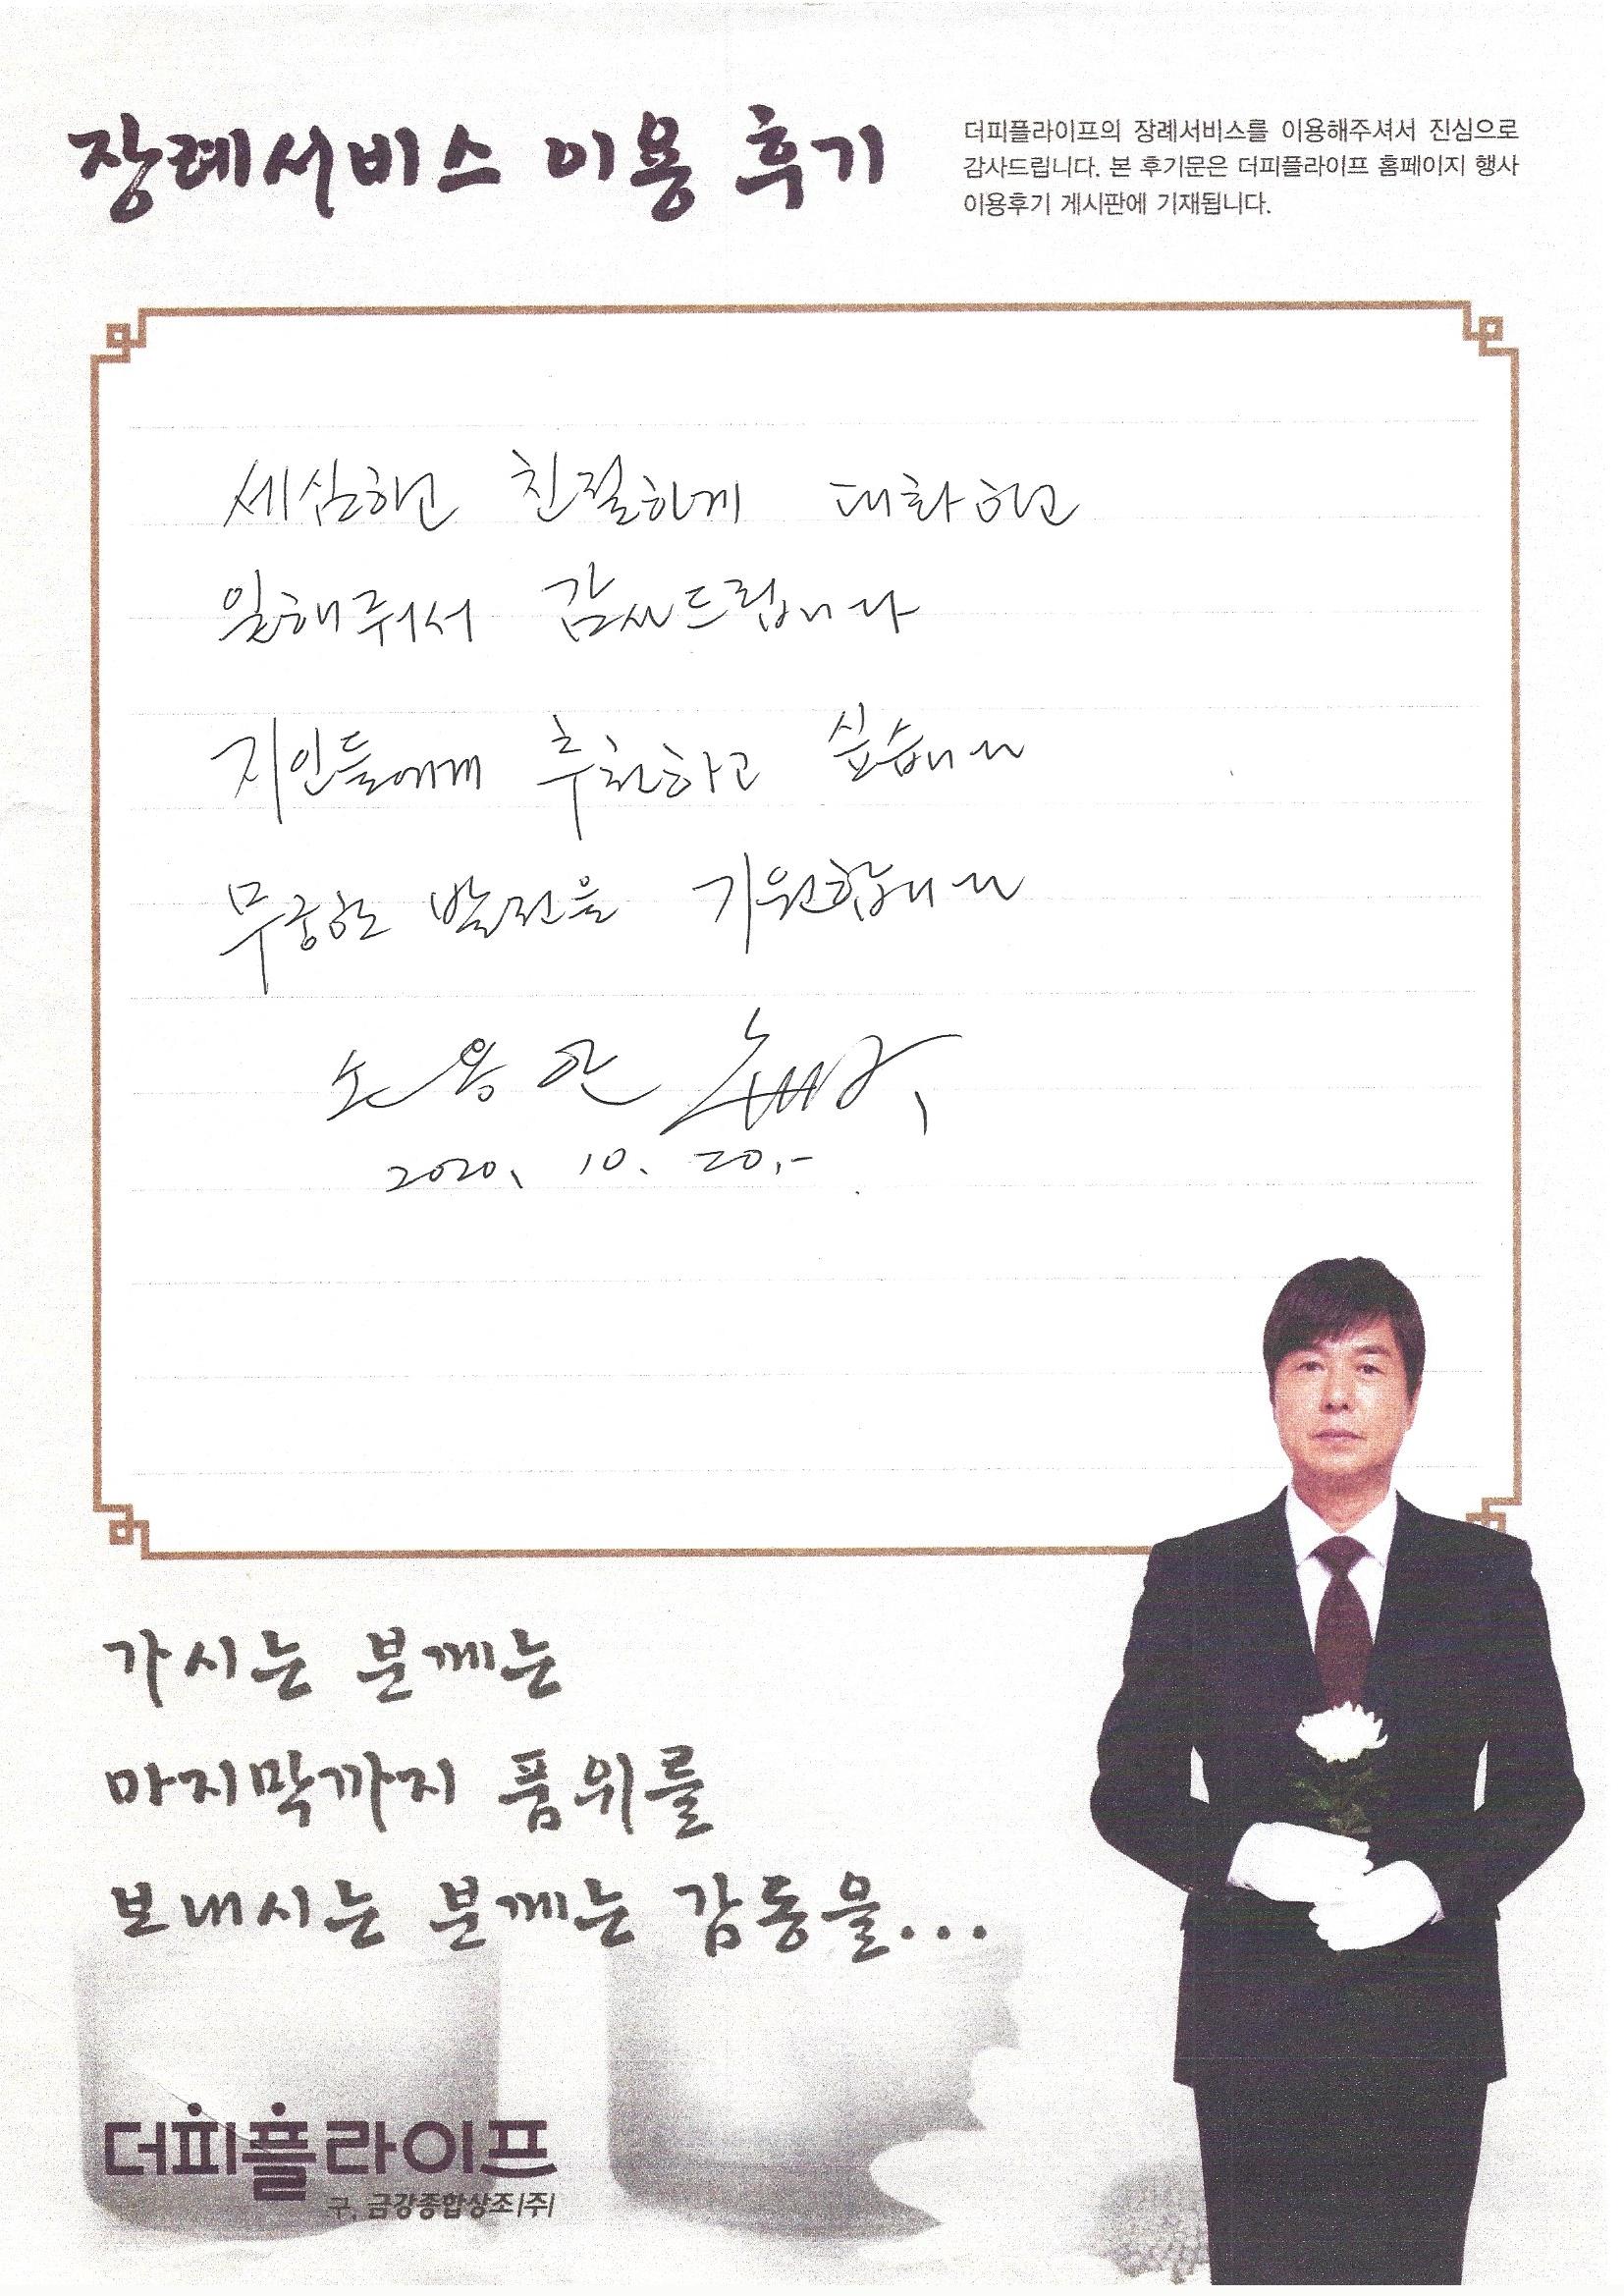 장례서비스 이용 후기
더피플라이프의 장례서비스를 이용해주셔서 진심으로
감사드립니다. 본 후기문은 더피플라이프 홈페이지 행사
이용후기 게시판에 기재됩니다.
세심하고 친절하게 대화하고
일해줘서 감사드립니다
지인들에게 추천하고 싶습니다
무궁한 발전을 기원합니다
2020. 10. 20.-
가시는 분께는
마지막까지 품위를
보내시는 분께는 감동을...
더피플라이프
구. 금강종합상조(주)